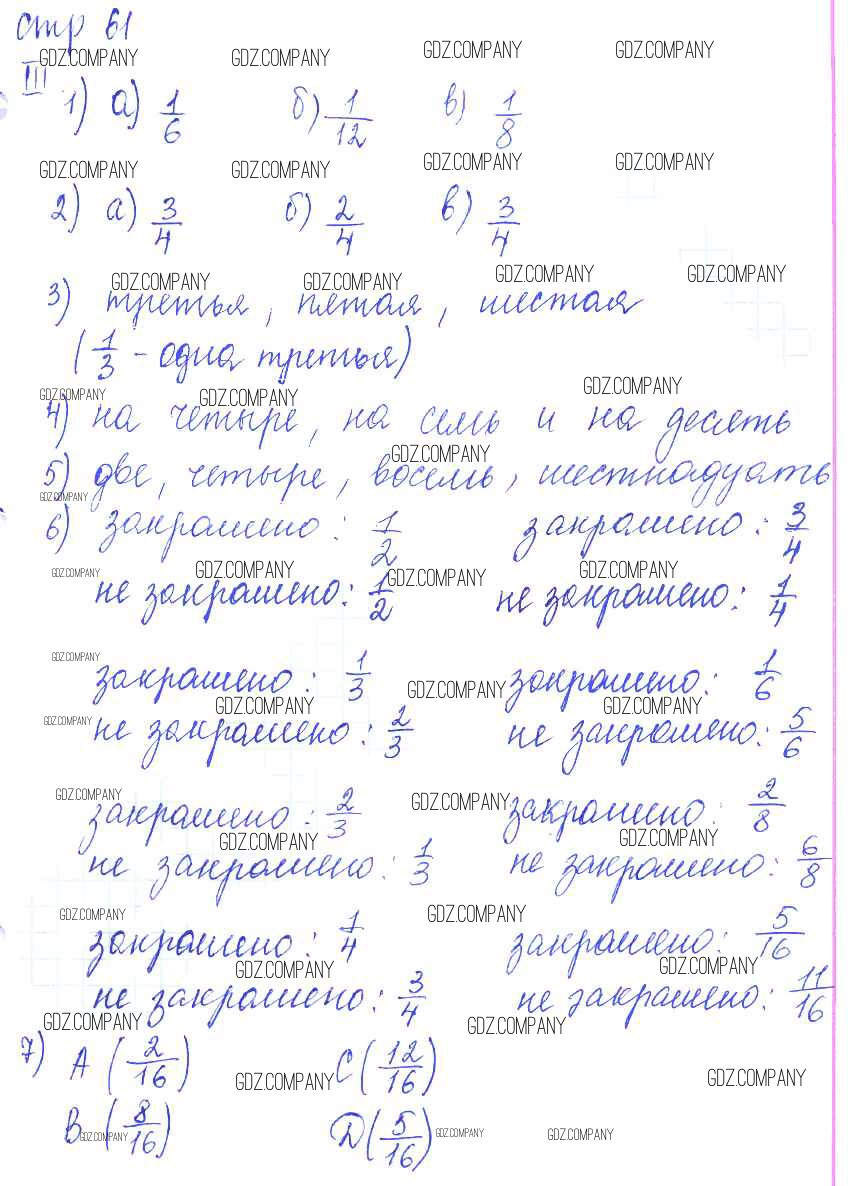 стр 61
GDZ.COMPANY GDZ.COMPANY GDZ.COMPANY GDZ.COMPANY
III
1) а) 1/6 б) 1/12 в) 1/8
GDZ.COMPANY GDZ.COMPANY GDZ.COMPANY GDZ.COMPANY
2) а) 3/4 б) 2/4 в) 3/4
GDZ.COMPANY GDZ.COMPANY GDZ.COMPANY GDZ.COMPANY
3) третья, пятая, шестая
(1/3 - одна третья)
GDZ.COMPANY GDZ.COMPANY GDZ.COMPANY
4) на четыре, на семь и на десять
GDZ.COMPANY
5) две, четыре, восемь, шестнадцать
GDZ.COMPANY
6) закрашено: 1/2 закрашено: 3/4
GDZ.COMPANY GDZ.COMPANY GDZ.COMPANY GDZ.COMPANY
не закрашено: 1/2 не закрашено: 1/4
GDZ.COMPANY
закрашено: 1/3 GDZ.COMPANY закрашено: 1/6
GDZ.COMPANY GDZ.COMPANY GDZ.COMPANY
не закрашено: 2/3 не закрашено: 5/6
GDZ.COMPANY GDZ.COMPANY
закрашено: 2/3 закрашено: 2/8
GDZ.COMPANY GDZ.COMPANY
не закрашено: 1/3 не закрашено: 6/8
GDZ.COMPANY GDZ.COMPANY
закрашено: 1/4 закрашено: 5/16
GDZ.COMPANY GDZ.COMPANY
не закрашено: 3/4 не закрашено: 11/16
GDZ.COMPANY GDZ.COMPANY
7) A (2/16) C (12/16)
GDZ.COMPANY GDZ.COMPANY
B (8/16) D (5/16)
GDZ.COMPANY GDZ.COMPANY GDZ.COMPANY